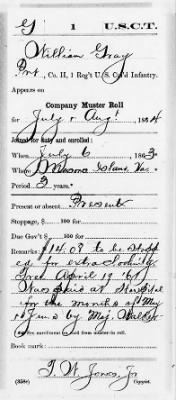 G | 1 | U.S.C.T.
William Gray
Pvt., Co. H, 1 Reg't U.S. Col'd Infantry.
Appears on
Company Muster Roll
for July & Aug, 1864
Joined for duty and enrolled:
When July 6, 1863.
Where Masons Island, Va.
Period 3 years.*
Present or absent Present
Stoppage, $ 100 for
Due Gov't $ 100 for
Remarks: $14.09 to be stopp
ed for extra Clothing
from April 19 '64
Was paid at Hospital
for the months of May
& June by Maj.
Book mark:
T. W. Jones, Jr
(358c) Copyist.